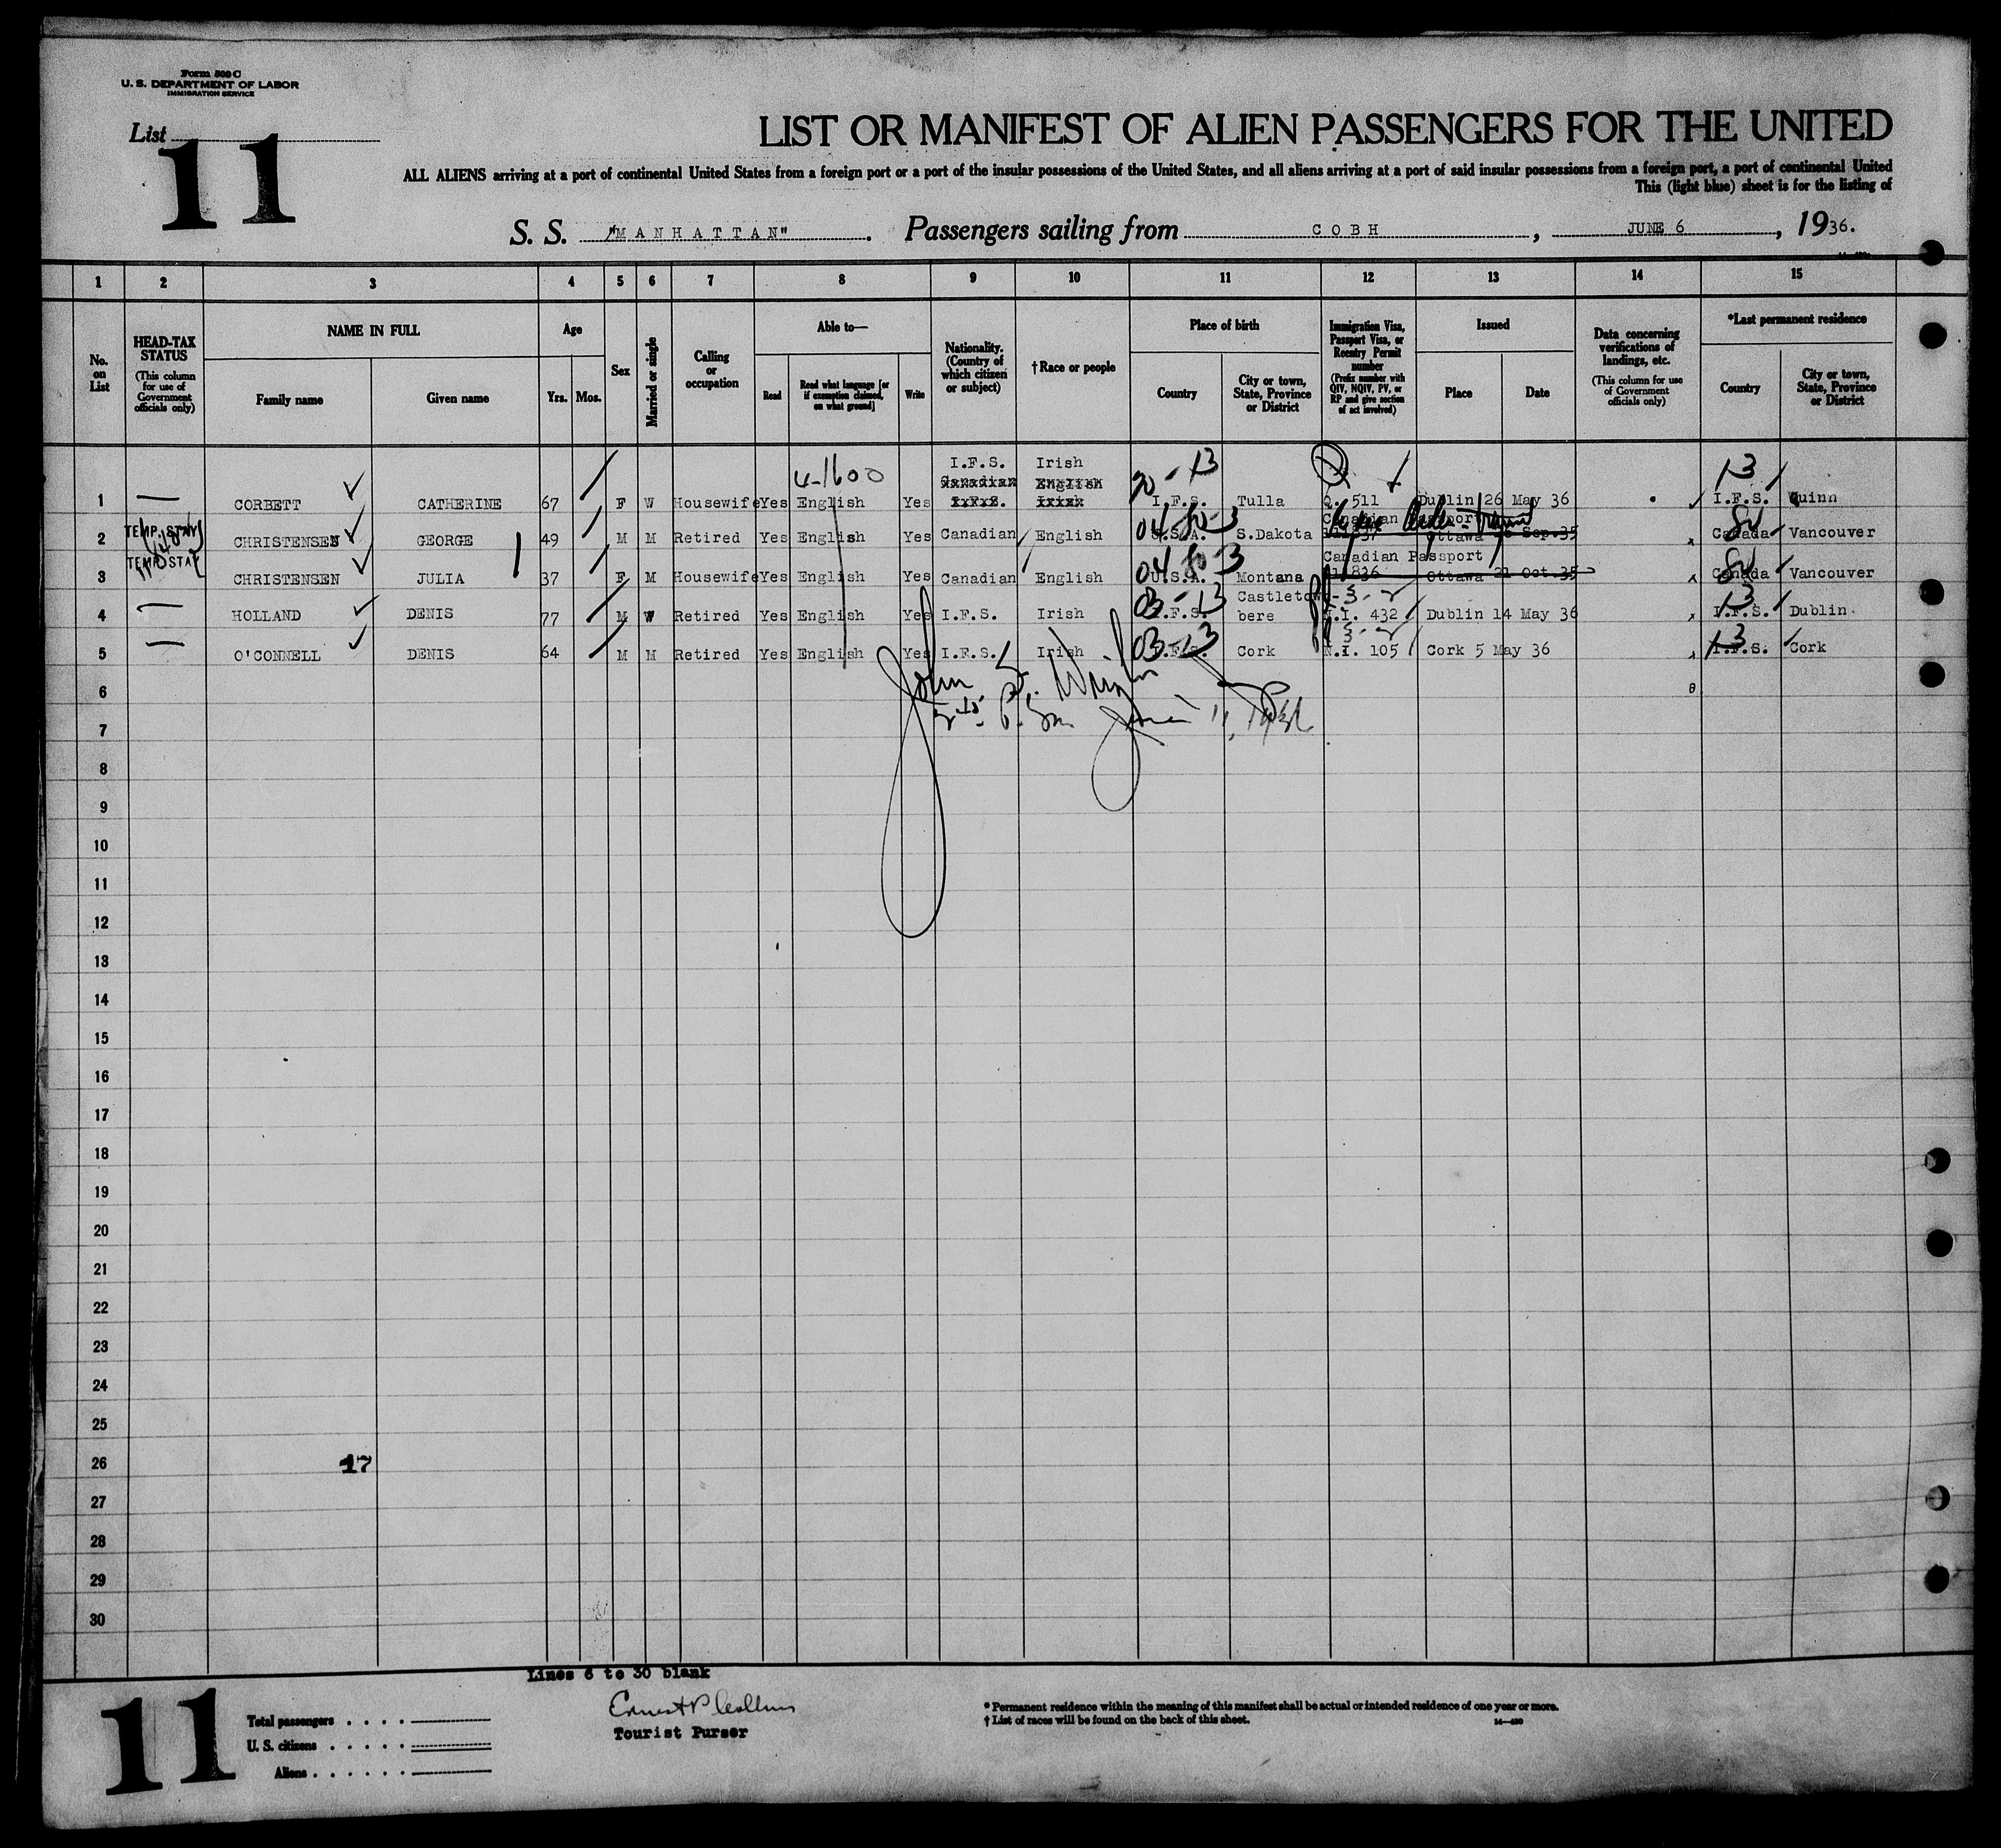 Form 500 C
U. S. DEPARTMENT OF LABOR
IMMIGRATION SERVICE
List
11
LIST OR MANIFEST OF ALIEN PASSENGERS FOR THE UNITED
ALL ALIENS arriving at a port of continental United States from a foreign port or a port of the insular possessions of the United States, and all aliens arriving at a port of said insular possessions from a foreign port, a port of continental United
This (light blue) sheet is for the listing of
S. S. "MANHATTAN". Passengers sailing from COBH, JUNE 6, 1936.
1 2 3 4 5 6 7 8 9 10 11 12 13 14 15
No. on List
HEAD-TAX STATUS
(This column for use of Government officials only)
NAME IN FULL
Family name
Given name
Age
Yrs. Mos.
Sex
Married or single
Calling or occupation
Able to—
Read
Read what language [or if exemption claimed, on what ground]
Write
Nationality. (Country of which citizen or subject)
†Race or people
Place of birth
Country
City or town, State, Province or District
Immigration Visa, Passport Visa, or Reentry Permit number
(Prefix number with QIV, NQIV, PV, or RP and give section of act involved)
Issued
Place
Date
Data concerning verifications of landings, etc.
(This column for use of Government officials only)
*Last permanent residence
Country
City or town, State, Province or District
4-1600
I.F.S. Irish 20-13 13
Canadian English
1 CORBETT CATHERINE 67 F W Housewife Yes English Yes I.F.S. Irish I.F.S. Tulla Q. 511 Dublin 26 May 36 I.F.S. Quinn
TEMP. STAY Canadian Passport
2 CHRISTENSEN GEORGE 49 M M Retired Yes English Yes Canadian English 04 80-3 U.S.A. S.Dakota Ottawa Sep.35 Canada Vancouver
TEMP STAY Canadian Passport
3 CHRISTENSEN JULIA 37 F M Housewife Yes English Yes Canadian English 04 80-3 U.S.A. Montana 836 Ottawa 21 Oct.35 Canada Vancouver
4 HOLLAND DENIS 77 M W Retired Yes English Yes I.F.S. Irish 03-13 I.F.S. Castletown-bere 432 Dublin 14 May 36 13 I.F.S. Dublin
5 O'CONNELL DENIS 64 M M Retired Yes English Yes I.F.S. Irish 03-13 I.F.S. Cork 105 Cork 5 May 36 13 I.F.S. Cork
6
John
June 11, 1936
7
8
9
10
11
12
13
14
15
16
17
18
19
20
21
22
23
24
25
26 17
27
28
29
30
Lines 6 to 30 blank
11
Total passengers
U. S. citizens
Aliens
Ernest P Collins
Tourist Purser
* Permanent residence within the meaning of this manifest shall be actual or intended residence of one year or more.
† List of races will be found on the back of this sheet.